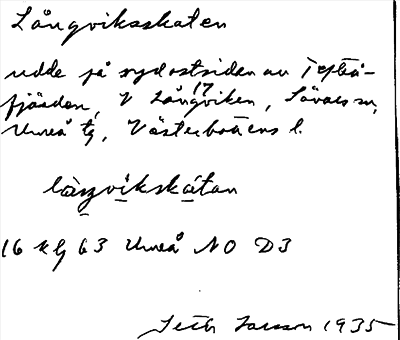 Långviksskaten
udde på sydostsidan av Tefteå-
fjärden, V Långviken, Sävars sn,
17
Umeå tg, Västerbottens l.
långvikskátan
16 Kg 63 Umeå NO D3
Seth Larsson 1935